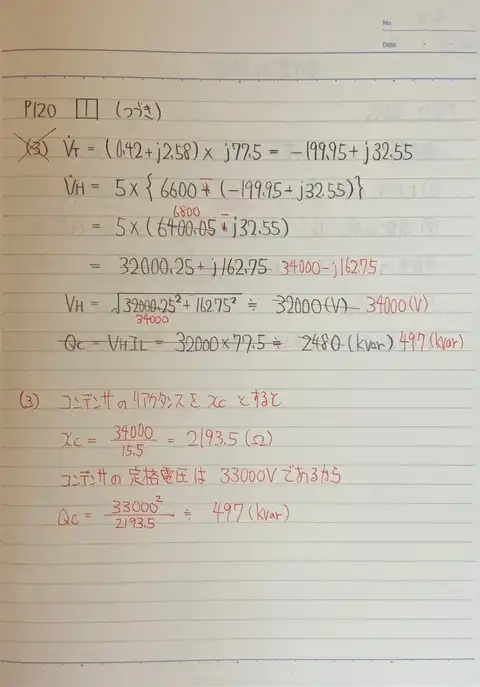 No.
Date
P120 Ⅲ (つづき)
(3) V̇T = (0.42+j2.58) × j77.5 = -199.95+j32.55
V̇H = 5×{6600 + - (-199.95+j32.55)}
= 5×(6400.05 6800 + - j32.55)
= 32000.25+j162.75 34000-j162.75
VH = √32000.25²+162.75² 34000 ≒ 32000(V) 34000(V)
Qc = VHIL = 32000×77.5 ≒ 2480(kvar) 497(kvar)
(3) コンデンサのリアクタンスをxcとすると
xc = 34000/15.5 = 2193.5(Ω)
コンデンサの定格電圧は 33000Vであるから
Qc = 33000²/2193.5 ≒ 497(kvar)